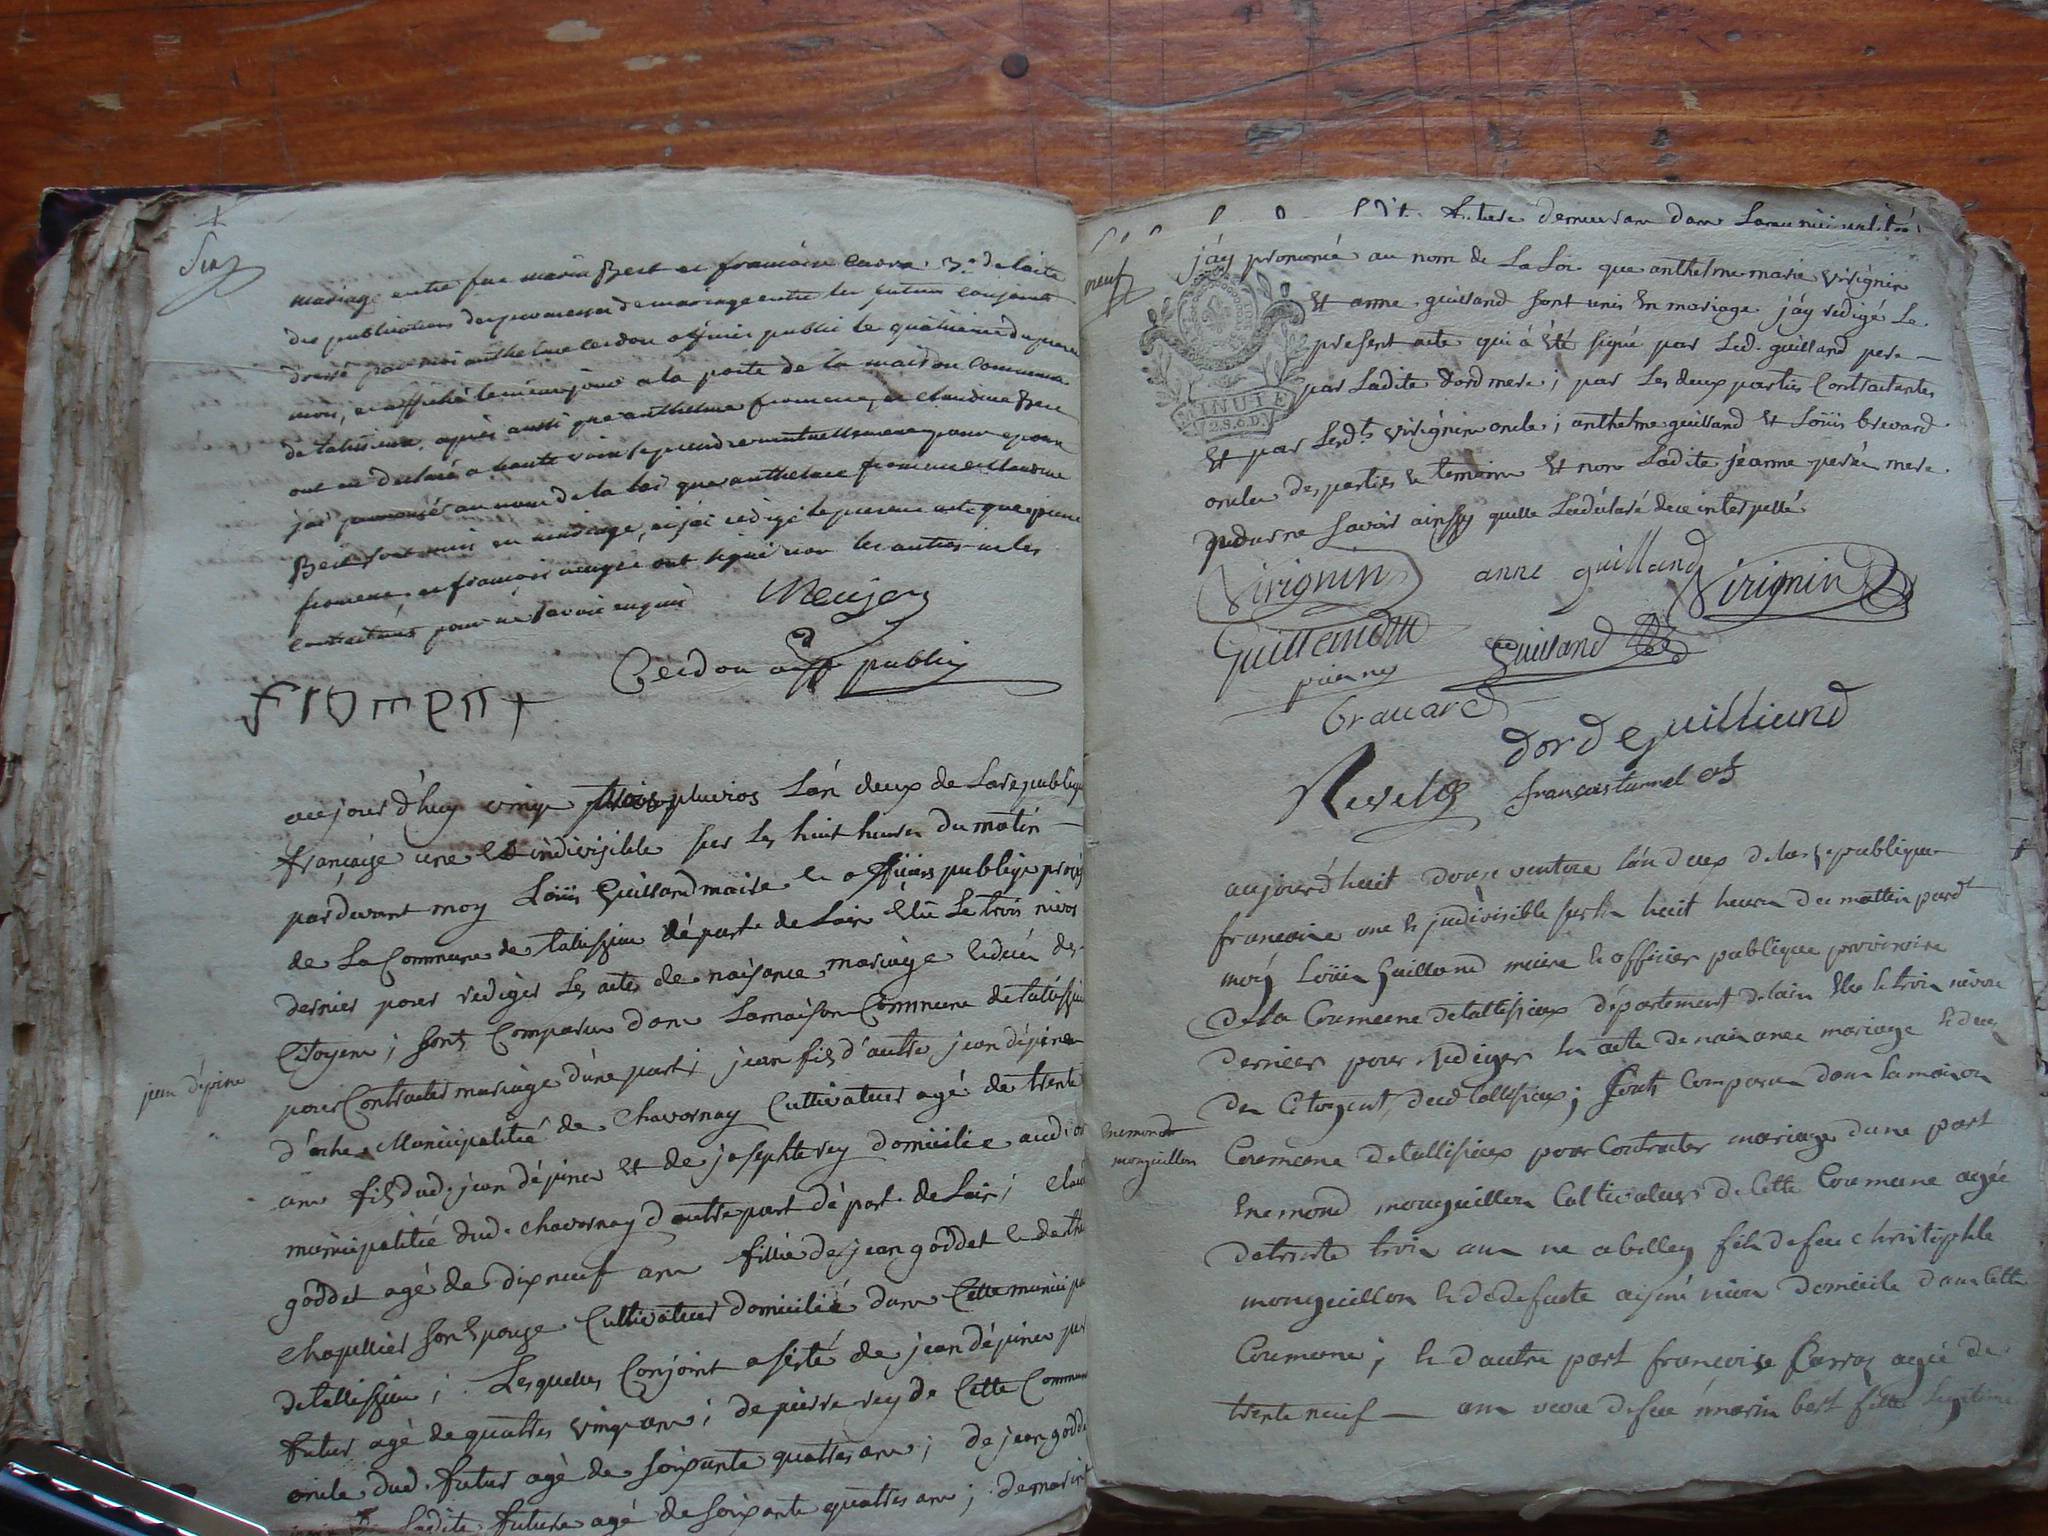 Six
mariage entre feu marin Bert et francoise Carra 3.° de lacte
des publications des promesses de mariage entre les futurs conjoints
dressé par moi anthelme Cerdon officier public le quatrieme du present
mois, et affiché le meme jour a la porte de la maison commune
de talissieu après aussi que anthelme froment et claudine Bert
ont eu declaré a haute voix se prendre mutuellement pour epoux
jai prononcé au nom de la loi que anthelme froment et claudine
Bert sont unis en mariage, et jai redigé le present acte que
froment et françois ont signé non les autres ni les
contractants pour ne savoir enquis
Cerdon off public
froment
aujourd'huy vingt pluvios L'an deux de Larepublique
française une et indivisible sur les huit heures du matin
pardevant moy Loüis Guilland maire et officier publique provis
de La Commune de talissieu départ. de Lain élû Le trois nivos
dernier pour rediger Les actes de naisance mariage et decés des
Citoyens ; sont Comparu dans Lamaison Commune de talissieu
pour Contracter mariage d'une part ; jean fils d'autre jean dépine
jean dépine
d'ache Municipalité de Chavornay Cultivateur agé de trente
ans fils dud. jean dépine et de josephte rey domicilié aud
municipalité dud. chavornay d'autre part départ. de Lain ;
goddet agé de dix neuf ans fille de jean goddet et de
chapellier son Epouse Cultivateur domicilié dans Cette municipa
detallissieu ; Lesquels Conjoint asisté de jean dépine
futur agé de quattre vingt ans ; de pierre rey de Cette Commune
oncle dud. futur agé de soixante quattre ans ; de jean godde
Ladite future agé de soixante quattre ans ;
neuf
demeuran dans Lamunicipalité
j'ay prononcé au nom de La Loi que anthelme marie virignin
Et anne guilland sont unis En mariage j'ay redigé Le
present acte qui à été signé par Led. guilland pere
par Ladite dord mere ; par Les deux parties Contractantes
MINUTE
12.S.6.D.
Et par Lesdts virignin oncle ; anthelme guilland Et Loüis brevard
oncles des parties et temoins Et non Ladite jéanne mere
pour ne savoir ainssy quelle La déclaré de ce interpellé
Virignin anne guilland Virignin
Guilland
bravard
dord Guilliand
Revel françois tunnel
aujourd'huit douze ventose lan deux de la republique
francaise une et indivisible sur les huit heures du mattin pardt
moÿ Loüis Guilland maire et officier publique provisoire
de la Coumeune de tallisieux département de lain Elu le trois nivose
dernier pour rediger les acte de naisance mariage et deces
des Citoyens dud tallisieux ; sont Comparu dans la maison
Coumeune de tallisieux pour Contracter mariage dune part
Enemond
monguillon
Enemond monguillon Cultivateur de Cette Coumeune agée
de trante trois ans ne a belley fils de feu christophle
monguillon et de defunte domicile dans Cette
Coumeune ; et dautre part françoise Carraz agée de
trente neuf — ans veuve de feu marin bert fille legitime